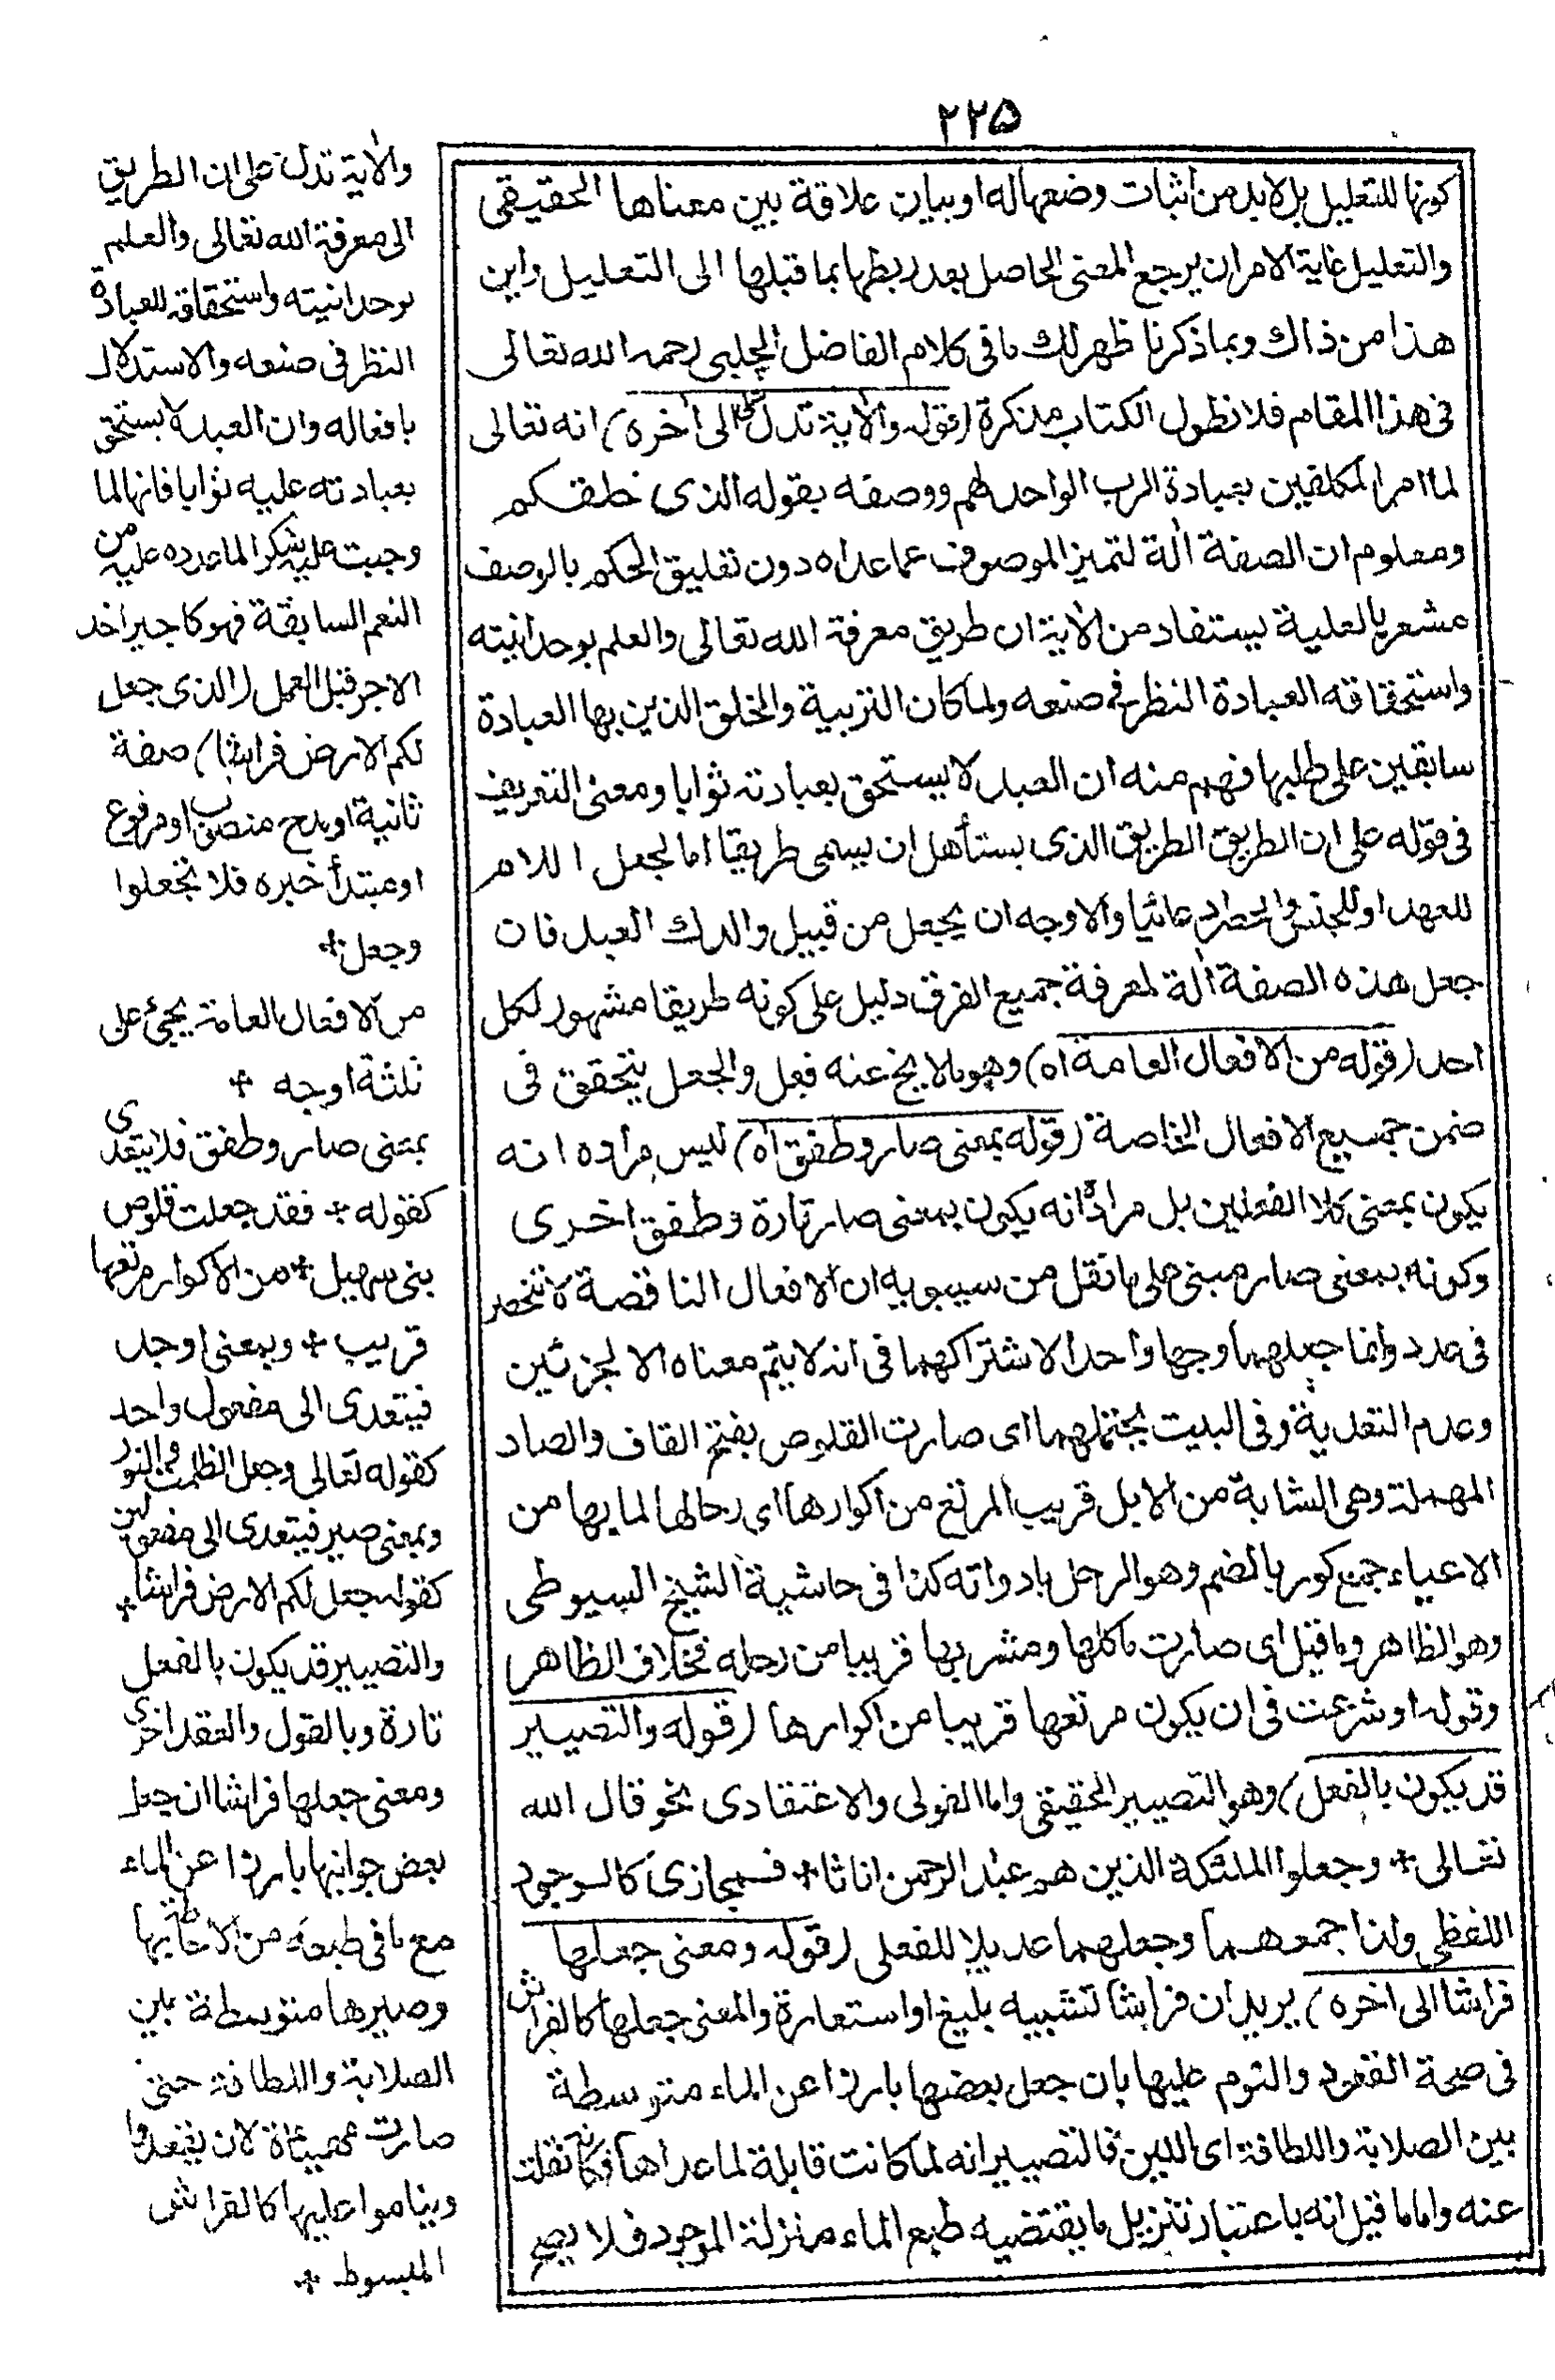 ٢٢٥
كونها للتعليل بل لابد من اثبات وضعها له او بيان علاقة بين معناها الحقيقى
والتعليل غاية الامر ان يرجع المعنى الحاصل بعد ربطها بما قبلها الى التعليل واين
هذا من ذاك وبما ذكرنا ظهر لك ما فى كلام الفاضل الچلبى رحمه الله تعالى
فى هذا المقام فلا نطول الكتاب بذكره (قوله والآية تدل على الى آخره) انه تعالى
لما امر المكلفين بعبادة الرب الواحد لهم ووصفه بقوله الذى خلقكم
ومعلوم ان الصفة آلة لتميز الموصوف عما عداه دون تعليق الحكم بالوصف
مشعر بالعلية يستفاد من الآية ان طريق معرفة الله تعالى والعلم بوحدانيته
واستحقاقه العبادة النظر فى صنعه ولما كان التربية والخلق الذين بها العبادة
سابقين على طلبها فهم منه ان العبد لا يستحق بعبادته ثوابا ومعنى التعريف
فى قوله على ان الطريق الطريق الذى يستأهل ان يسمى طريقا اما لجعل اللام
للعهد او للجنس والحصر ادعائيا والاوجه ان يجعل من قبيل والدك العبد فان
جعل هذه الصفة آلة لمعرفة جميع الفرق دليل على كونه طريقا مشهور لكل
احد (قوله من الافعال العامة اه) وهو ما لا يخ عنه فعل والجعل يتحقق فى
ضمن جميع الافعال الخاصة (قوله بمعنى صار وطفق اه) ليس مراده انه
يكون بمعنى كلا الفعلين بل مراده انه يكون بمعنى صار تارة وطفق اخرى
وكونه بمعنى صار مبنى على ما نقل من سيبويه ان الافعال الناقصة لا تنحصر
فى عدد وانما جعلهما وجها واحدا لاشتراكهما فى انه لا يتم معناه الا لجزئين
وعدم التعدية وفى البيت يحتملهما اى صارت القلوص بفتح القاف والصاد
المهملة وهى الشابة من الابل قريب المرتع من اكوارها اى رحالها لما بها من
الاعياء جمع كور بالضم وهو الرحل بادواته كذا فى حاشية الشيخ السيوطى
وهو الظاهر وما قيل اى صارت ماكلها ومشربها قريبا من رحله فخلاف الظاهر
وقوله او شرعت فى ان يكون مرتعها قريبا من اكوارها (قوله والتصيير
قد يكون بالفعل) وهو التصيير الحقيقى واما القولى والاعتقادى نحو قال الله
تعالى + وجعلوا الملئكة الذين هم عبد الرحمن اناثا + فمجازى كالوجود
اللفظى ولذا جمعهما وجعلهما عديلا للفعلى (قوله ومعنى جعلها
فراشا الى آخره) يريد ان فراشا تشبيه بليغ او استعارة والمعنى جعلها كالفراش
فى صحة القعود والنوم عليها بان جعل بعضها بارزا عن الماء متوسطة
بين الصلابة واللطافة اى اللين فالتصيير انه لما كانت قابلة لما عداها فكانه نقلت
عنه واما ما قيل انه باعتبار تنزيل ما يقتضيه طبع الماء منزلة الموجود فلا يصح
والآية تدل على ان الطريق
الى معرفة الله تعالى والعلم
بوحدانيته واستحقاقه للعبادة
النظر فى صنعه والاستدلال
بافعاله وان العبد لا يستحق
بعبادته عليه ثوابا فانها لما
وجبت عليه شكرا لما عدده عليه من
النعم السابقة فهو كاجير اخذ
الاجر قبل العمل (الذى جعل
لكم الارض فراشا) صفة
ثانية او مدح منصوب او مرفوع
او مبتدأ خبره فلا تجعلوا
وجعل +
من الافعال العامة يجئ على
ثلثة اوجه +
بمعنى صار وطفق فلا يتعدى
كقوله + فقد جعلت قلوص
بنى سهيل + من الاكوار مرتعها
قريب + وبمعنى اوجد
فيتعدى الى مفعول واحد
كقوله تعالى وجعل الظلمت والنور
وبمعنى صير فيتعدى الى مفعولين
كقوله جعل لكم الارض فراشا +
والتصيير قد يكون بالفعل
تارة وبالقول والعقد اخرى
ومعنى جعلها فراشا ان جعل
بعض جوانبها بارزا عن الماء
مع ما فى طبعه من الاحاطة بها
وصيرها متوسطة بين
الصلابة واللطافة حتى
صارت مهيئاة لان يقعدوا
ويناموا عليها كالفراش
المبسوط +